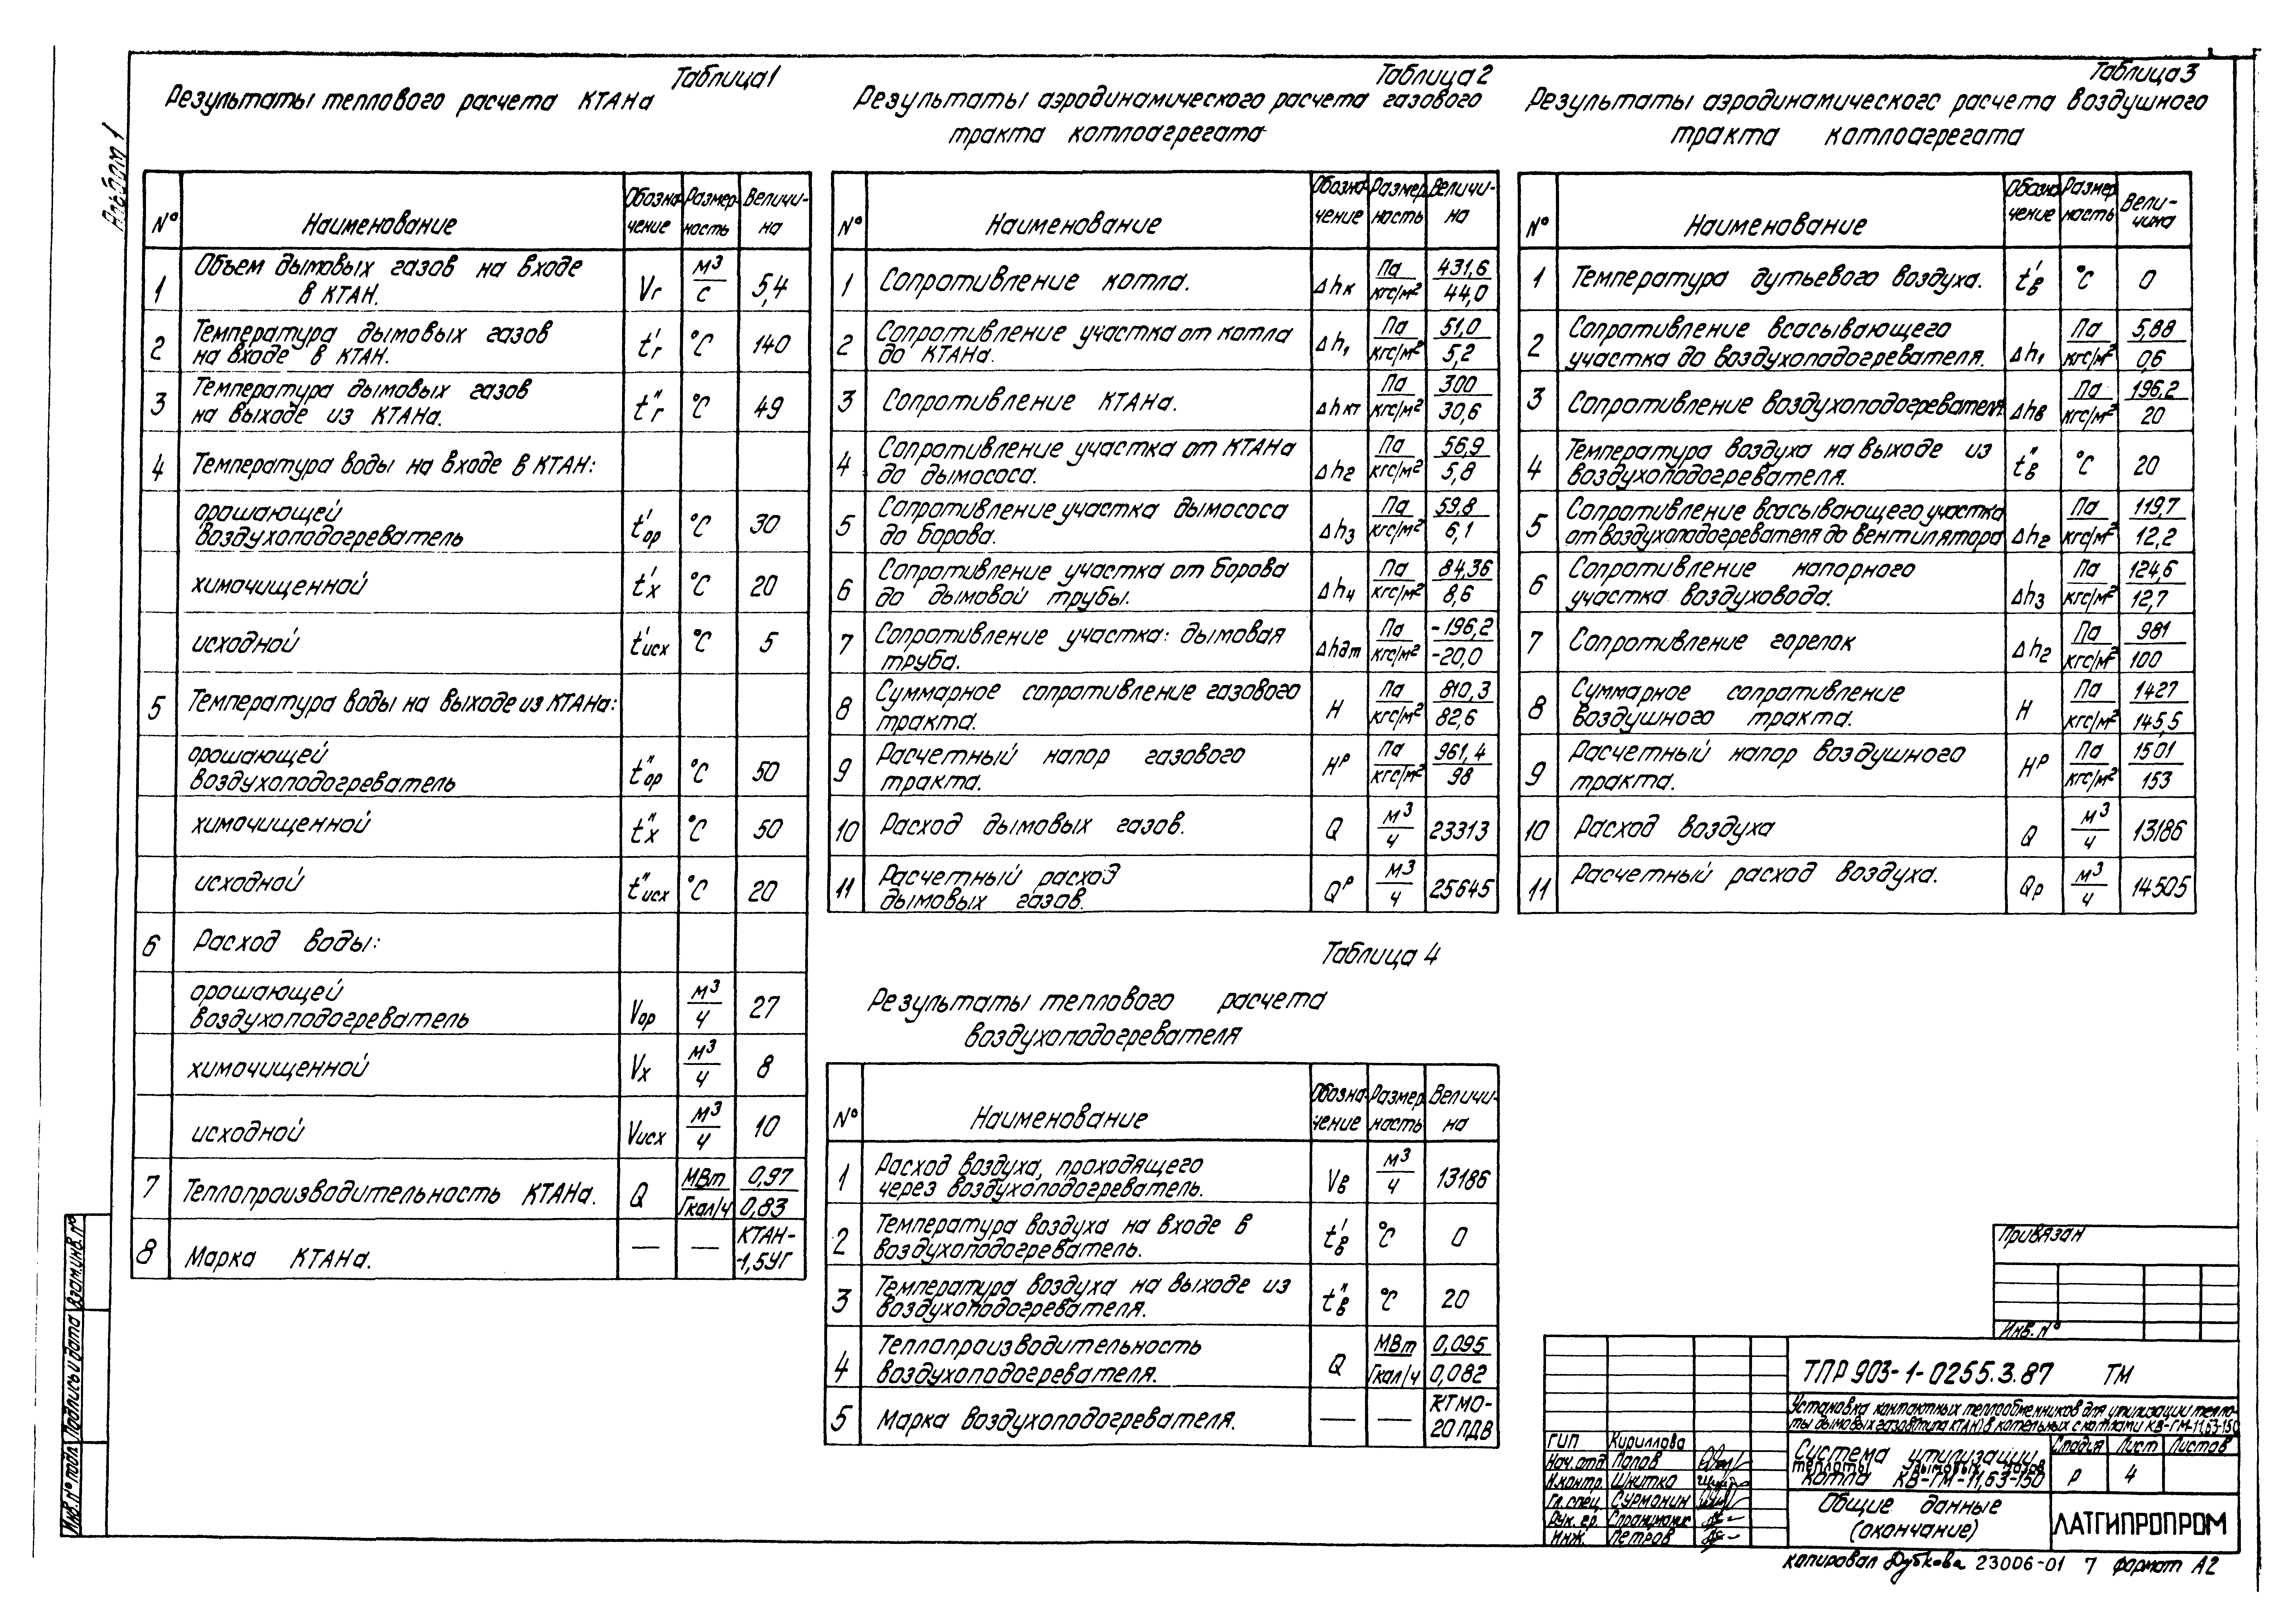 Альбом 1
Таблица 1
Результаты теплового расчета КТАНа
№ Наименование Обозна-чение Размер-ность Величи-на
1 Объем дымовых газов на входе
в КТАН. Vг м³/с 5,4
2 Температура дымовых газов
на входе в КТАН. t'г °С 140
3 Температура дымовых газов
на выходе из КТАНа. t"г °С 49
4 Температура воды на входе в КТАН:
орошающей
воздухоподогреватель t'ор °С 30
химочищенной t'х °С 20
исходной t'исх °С 5
5 Температура воды на выходе из КТАНа:
орошающей
воздухоподогреватель t"ор °С 50
химочищенной t"х °С 50
исходной t"исх °С 20
6 Расход воды:
орошающей
воздухоподогреватель Vор м³/ч 27
химочищенной Vх м³/ч 8
исходной Vисх м³/ч 10
7 Теплопроизводительность КТАНа. Q МВт/Гкал/ч 0,97/0,83
8 Марка КТАНа. — — КТАН-
-1,5УГ
Таблица 2
Результаты аэродинамического расчета газового
тракта котлоагрегата
№ Наименование Обозна-чение Размер-ность Величи-на
1 Сопротивление котла. Δhк Па/кгс/м² 431,6/44,0
2 Сопротивление участка от котла
до КТАНа. Δh₁ Па/кгс/м² 51,0/5,2
3 Сопротивление КТАНа. Δhкт Па/кгс/м² 300/30,6
4 Сопротивление участка от КТАНа
до дымососа. Δh₂ Па/кгс/м² 56,9/5,8
5 Сопротивление участка дымососа
до борова. Δh₃ Па/кгс/м² 59,8/6,1
6 Сопротивление участка от борова
до дымовой трубы. Δh₄ Па/кгс/м² 84,36/8,6
7 Сопротивление участка: дымовая
труба. Δhдт Па/кгс/м² -196,2/-20,0
8 Суммарное сопротивление газового
тракта. H Па/кгс/м² 810,3/82,6
9 Расчетный напор газового
тракта. Hᴾ Па/кгс/м² 961,4/98
10 Расход дымовых газов. Q м³/ч 23313
11 Расчетный расход
дымовых газов. Qᴾ м³/ч 25645
Таблица 3
Результаты аэродинамического расчета воздушного
тракта котлоагрегата
№ Наименование Обозна-чение Размер-ность Вели-чина
1 Температура дутьевого воздуха. t'в °С 0
2 Сопротивление всасывающего
участка до воздухоподогревателя. Δh₁ Па/кгс/м² 5,88/0,6
3 Сопротивление воздухоподогревателя. Δhв Па/кгс/м² 196,2/20
4 Температура воздуха на выходе из
воздухоподогревателя. t"в °С 20
5 Сопротивление всасывающего участка
от воздухоподогревателя до вентилятора Δh₂ Па/кгс/м² 119,7/12,2
6 Сопротивление напорного
участка воздуховода. Δh₃ Па/кгс/м² 124,6/12,7
7 Сопротивление горелок Δh₂ Па/кгс/м² 981/100
8 Суммарное сопротивление
воздушного тракта. H Па/кгс/м² 1427/145,5
9 Расчетный напор воздушного
тракта. Hᴾ Па/кгс/м² 1501/153
10 Расход воздуха Q м³/ч 13186
11 Расчетный расход воздуха. Qр м³/ч 14505
Таблица 4
Результаты теплового расчета
воздухоподогревателя
№ Наименование Обозна-чение Размер-ность Величи-на
1 Расход воздуха, проходящего
через воздухоподогреватель. Vв м³/ч 13186
2 Температура воздуха на входе в
воздухоподогреватель. t'в °С 0
3 Температура воздуха на выходе из
воздухоподогревателя. t"в °С 20
4 Теплопроизводительность
воздухоподогревателя. Q МВт/Гкал/ч 0,095/0,082
5 Марка воздухоподогревателя. — — КТМО-
20 ПДВ
Привязан
Инв. №
ТПР 903-1-0255.3.87 ТМ
Установка контактных теплообменников для утилизации тепло-
ты дымовых газов (типа КТАН) в котельных с котлами КВ-ГМ-11,63-150
ГИП Кириллова
Нач. отд. Попов
Н.контр. Шкитко
Гл. спец. Сурманин
Рук. гр.
Инж. Петров
Система утилизации
теплоты дымовых газов
котла КВ-ГМ-11,63-150
Стадия Лист Листов
Р 4
Общие данные
(окончание)
ЛАТГИПРОПРОМ
копировал Дубкова 23006-01 7 формат А2
Инв. № подл. Подпись и дата Взам. инв. №